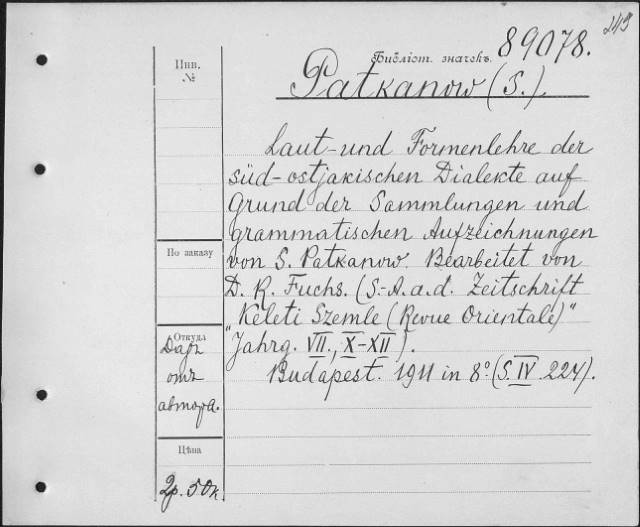 243
Библіот. значекъ. 89078.
Инв.
№
Patkanow (S.).
Laut- und Formenlehre der
süd-ostjakischen Dialekte auf
Grund der Sammlungen und
grammatischen Aufzeichnungen
По заказу
von S. Patkanow. Bearbeitet von
D. R. Fuchs. (S.-A. a. d. Zeitschrift
„Keleti Szemle (Revue Orientale)"
Откуда
Jahrg. VII., X-XII).
Budapest. 1911 in 8° (S. IV 224).
Даръ
отъ
автора.
Цѣна
2р. 50к.